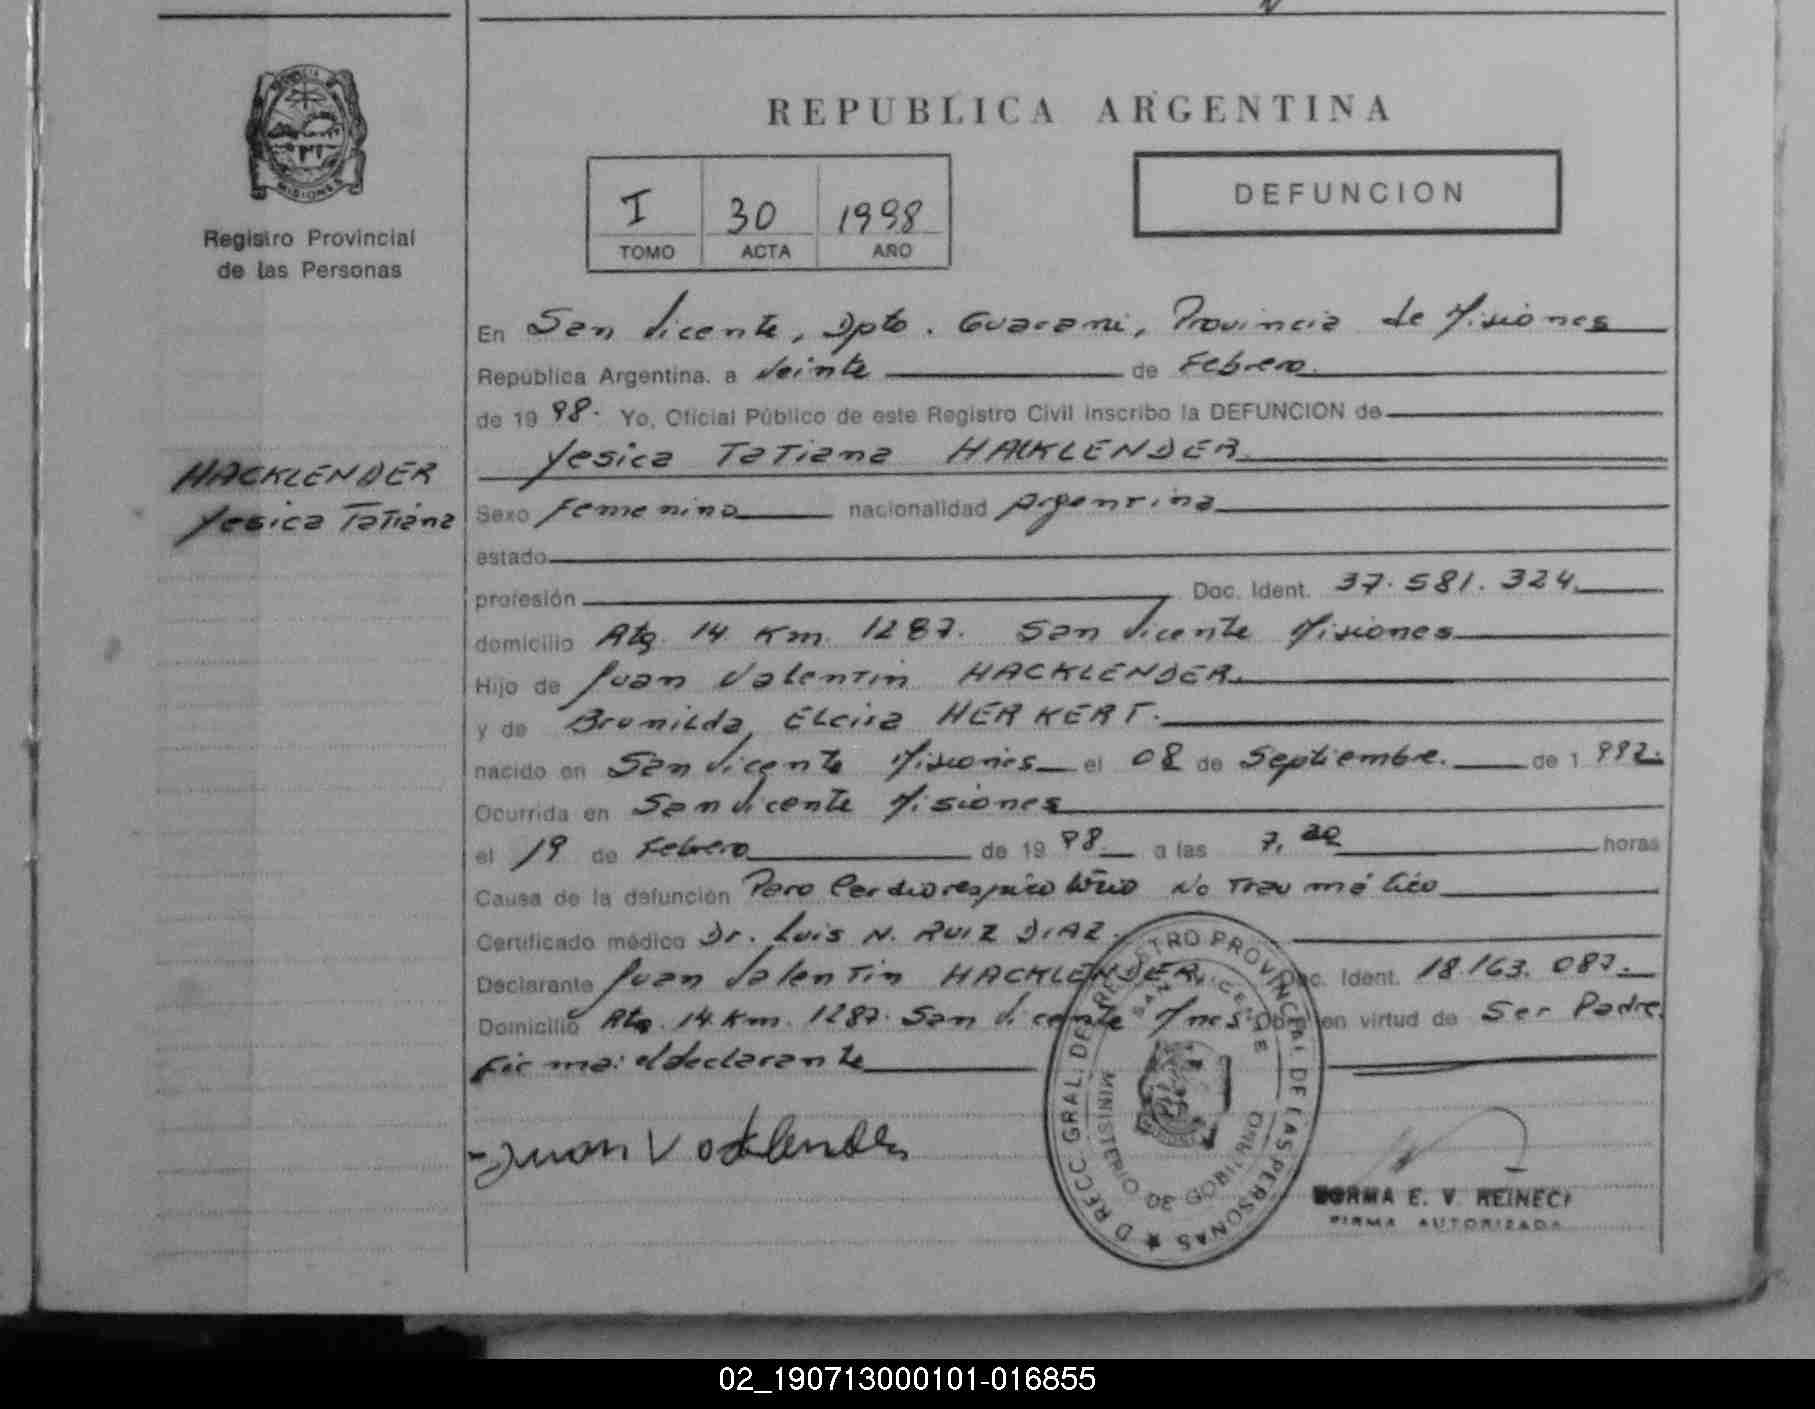 MISIONES
Registro Provincial
de las Personas
HACKLENDER
Yesica Tatiana
REPUBLICA ARGENTINA
I 30 1998
TOMO ACTA AÑO
DEFUNCION
En San Vicente, Dpto. Guarani, Provincia de Misiones
República Argentina. a veinte de Febrero.
de 19 98. Yo, Oficial Público de este Registro Civil inscribo la DEFUNCION de
Yesica Tatiana HACKLENDER
Sexo Femenino nacionalidad Argentina
estado
profesión Doc. Ident. 37.581.324
domicilio Rta. 14 Km. 1287. San Vicente Misiones
Hijo de Juan Valentin HACKLENDER.
y de Brunilda Elcira HERKERT.
nacido en San Vicente Misiones el 08 de Septiembre. de 1 992.
Ocurrida en San Vicente Misiones
el 19 de Febrero de 19 98. a las 7, horas
Causa de la defunción Paro Cardiorespiratorio No Traumático
Certificado médico Dr. Luis N. RUIZ DIAZ.
Declarante Juan Valentin HACKLENDER. Doc. Ident. 18.163.087.
Domicilio Rta. 14 Km. 1287. San Vicente Mnes Obra en virtud de Ser Padre.
Firma: el declarante
Juan V
DIRECC. GRAL. DEL REGISTRO PROVINCIAL DE LAS PERSONAS
SAN VICENTE
MINISTERIO DE GOBIERNO
NORMA E. V. REINECK
FIRMA AUTORIZADA
02_190713000101-016855